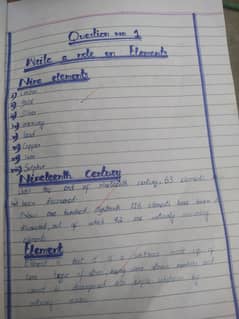 Question no: 1
Write a note on Elements
Nine elements
i) Carbon
ii) Gold
iii) Silver
iv) mercury
v) lead
vi) Copper
vii) Iron
viii) Sulphur
Nineteenth Century
end of nineteenth century, 63 elements
been discovered
Now one hundred eighteen 118 elements have been
out of which 92 are naturally occurring
elements
Element
Element is that it is a substance made up of
same type of atoms, having same atomic number and
cannot be decomposed into simple substance by
ordinary